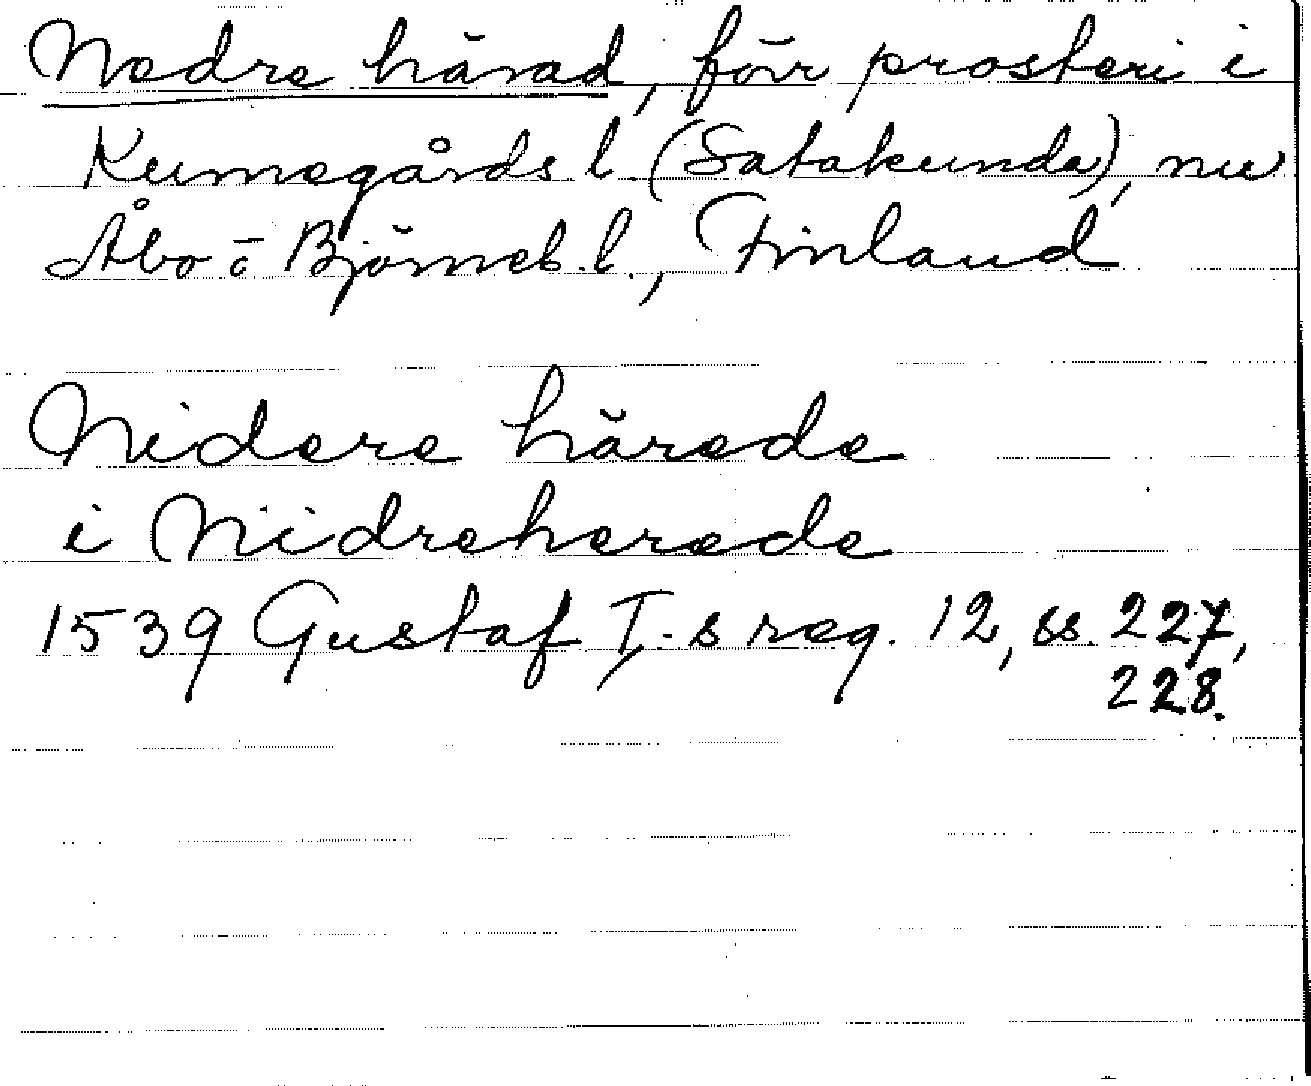 Nedre härad, förr prosteri i
Kumogårds l. (Satakunda), nu
Åbo o Björneb. l., Finland
Nidere härede
i Niidreherede
1539 Gustaf I.s reg. 12, ss. 227,
228.